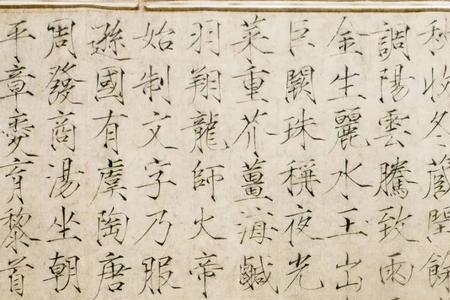 秋收冬藏閏餘
調陽雲騰致雨
金生麗水玉出
巨闕珠稱夜光
菜重芥薑海鹹
羽翔龍師火帝
始制文字乃服
遜國有虞陶唐
周發商湯坐朝
平章愛育黎首